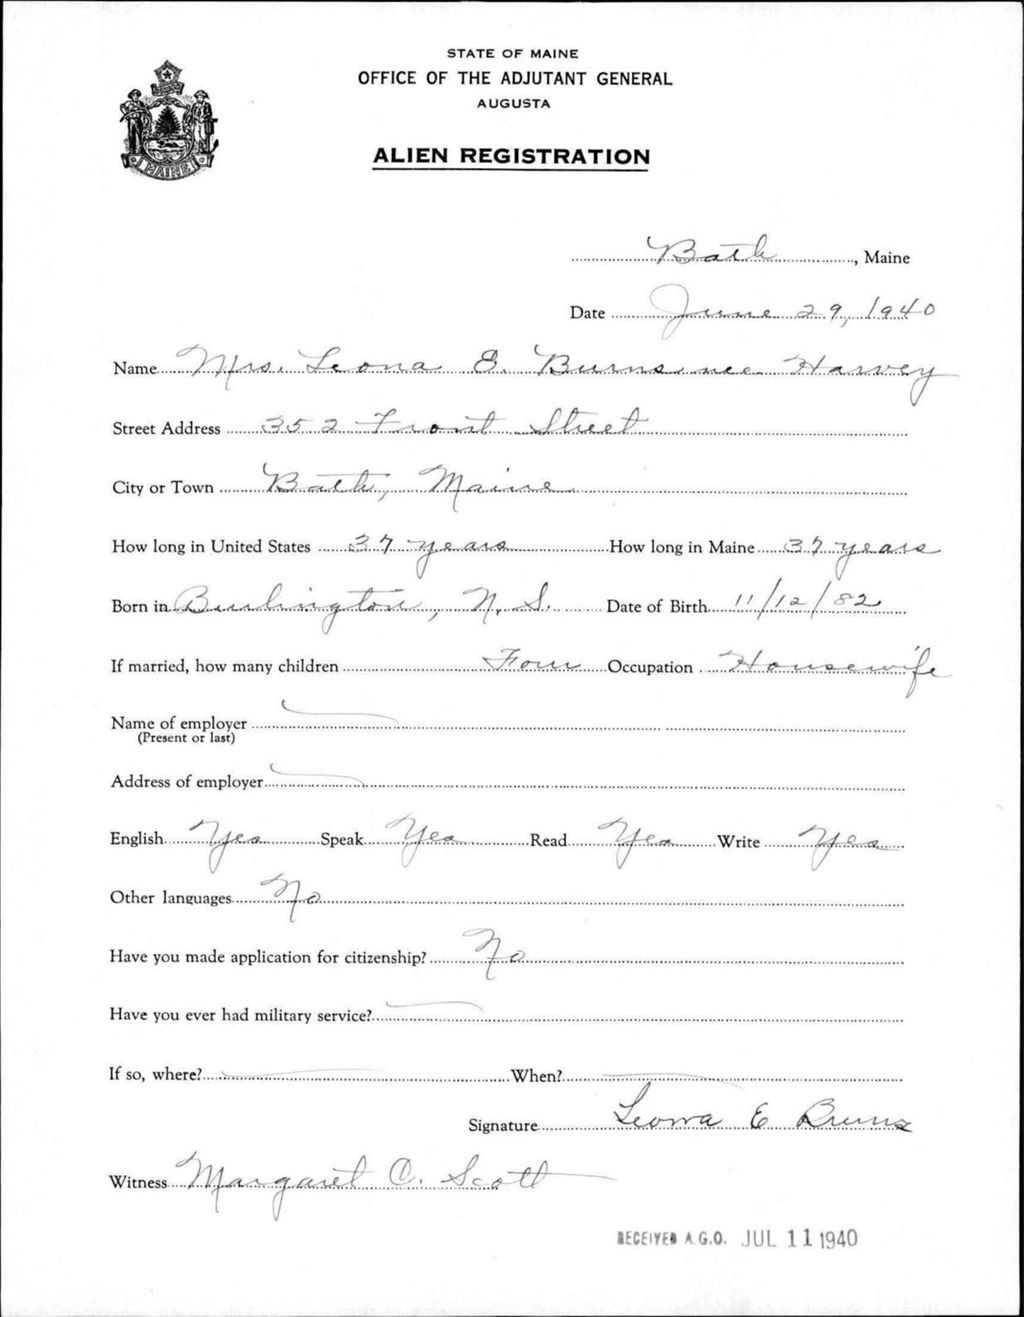 STATE OF MAINE
OFFICE OF THE ADJUTANT GENERAL
AUGUSTA
ALIEN REGISTRATION
MAINE
Bath, Maine
Date June 29, 1940
Name Mrs. Leona E. Burns nee Harvey
Street Address 352 Front Street
City or Town Bath, Maine
How long in United States 37 years How long in Maine 37 years
Born in Burlington, N. S. Date of Birth 11/12/82
If married, how many children Four Occupation Housewife
Name of employer
(Present or last)
Address of employer
English Yes Speak Yes Read Yes Write Yes
Other languages No
Have you made application for citizenship? No
Have you ever had military service?
If so, where? When?
Signature Leona E Burns
Witness Margaret C. Scott
RECEIVED A.G.O. JUL 11 1940